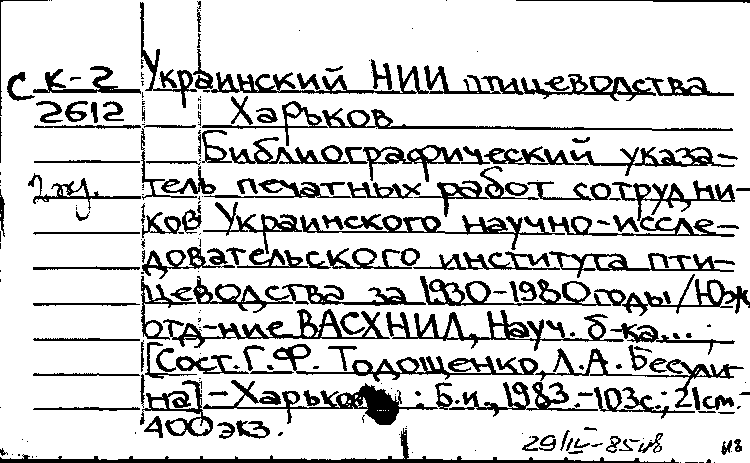 С К-2 Украинский НИИ птицеводства
2612 Харьков.
Библиографический указа-
2 эк. тель печатных работ сотрудни-
ков Украинского научно-иссле-
довательского института пти-
цеводства за 1930-1980 годы/Юж
отд-ние ВАСХНИЛ, Науч. б-ка...;
[Сост. Г.Ф. Тодощенко, Л.А. Бесули-
на].-Харьков : Б.и., 1983.-103с.; 21см.-
400 экз.
29/IV-85